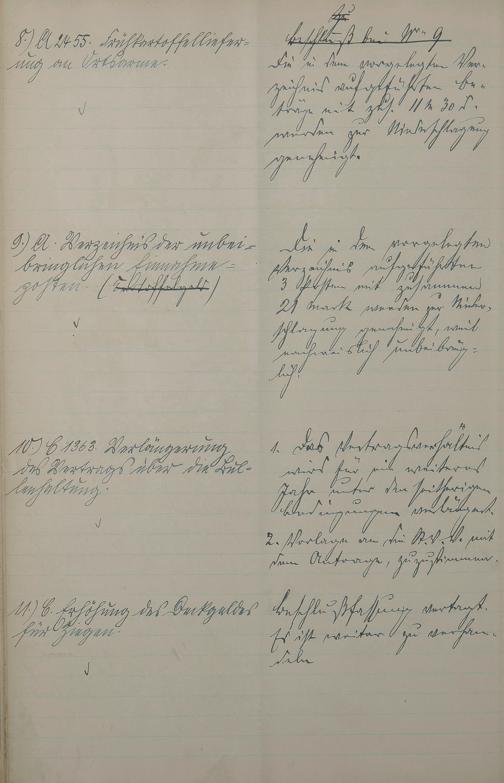 8.) A 2455. Frühkartoffelliefer-
ung an Ortsarme.
zu
Beschluß bei Nr. 9
Die in dem vorgelegten Ver-
zeichnis aufgeführten Be-
träge mit zus. 11 M 30 d.
werden zur Niederschlagung
genehmigt.
9.) A. Verzeichnis der unbei-
bringlichen Einnahme-
posten.
Die in dem vorgelegten
Verzeichnis aufgeführten
3 Posten mit zusammen
21 Markt werden zur Nieder-
schlagung genehmigt, weil
nachweislich unbeibring-
lich.
10.) C 1363. Verlängerung
des Vertrags über die Bul-
lenhaltung.
1. Das Vertragsverhältnis
wird für ein weiteres
Jahr unter den seitherigen
Bedingungen verlängert.
2. Vorlage an die K.V.V. mit
dem Antrage, zuzustimmen.
11.) C. Erhöhung des Deckgeldes
für Ziegen.
Beschlußfassung vertagt.
Es ist weiter zu verhan-
deln